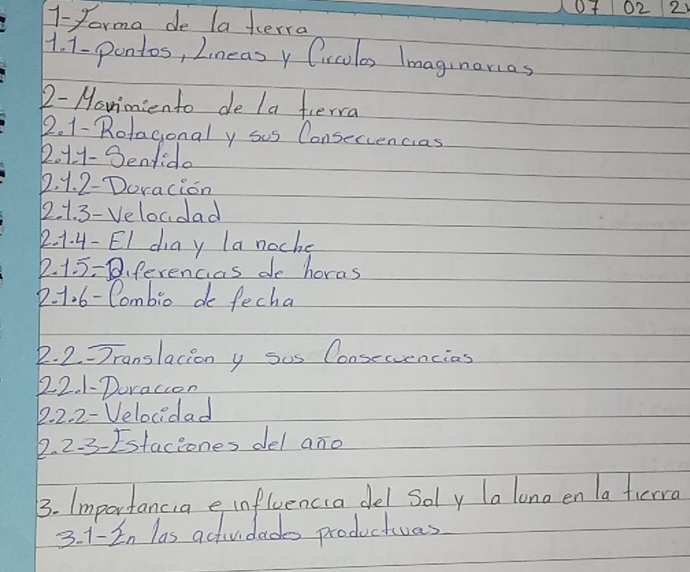 07 02 2
1-Forma de la tierra
1.1-puntos, Lineas y Circulos Imaginarias
2-Movimiento de la tierra
2.1-Rotacional y sus Consecuencias
2.1.1-Sentido
2.1.2-Duración
2.1.3-Velocidad
2.1.4-El dia y la noche
2.1.5-Diferencias de horas
2.1.6-Cambio de fecha
2.2-Translacion y sus Consecuencias
2.2.1-Duraccion
2.2.2-Velocidad
2.2-3-Estaciones del año
3. Importancia e influencia del Sol y la luna en la tierra
3.1-En las actividades productivas